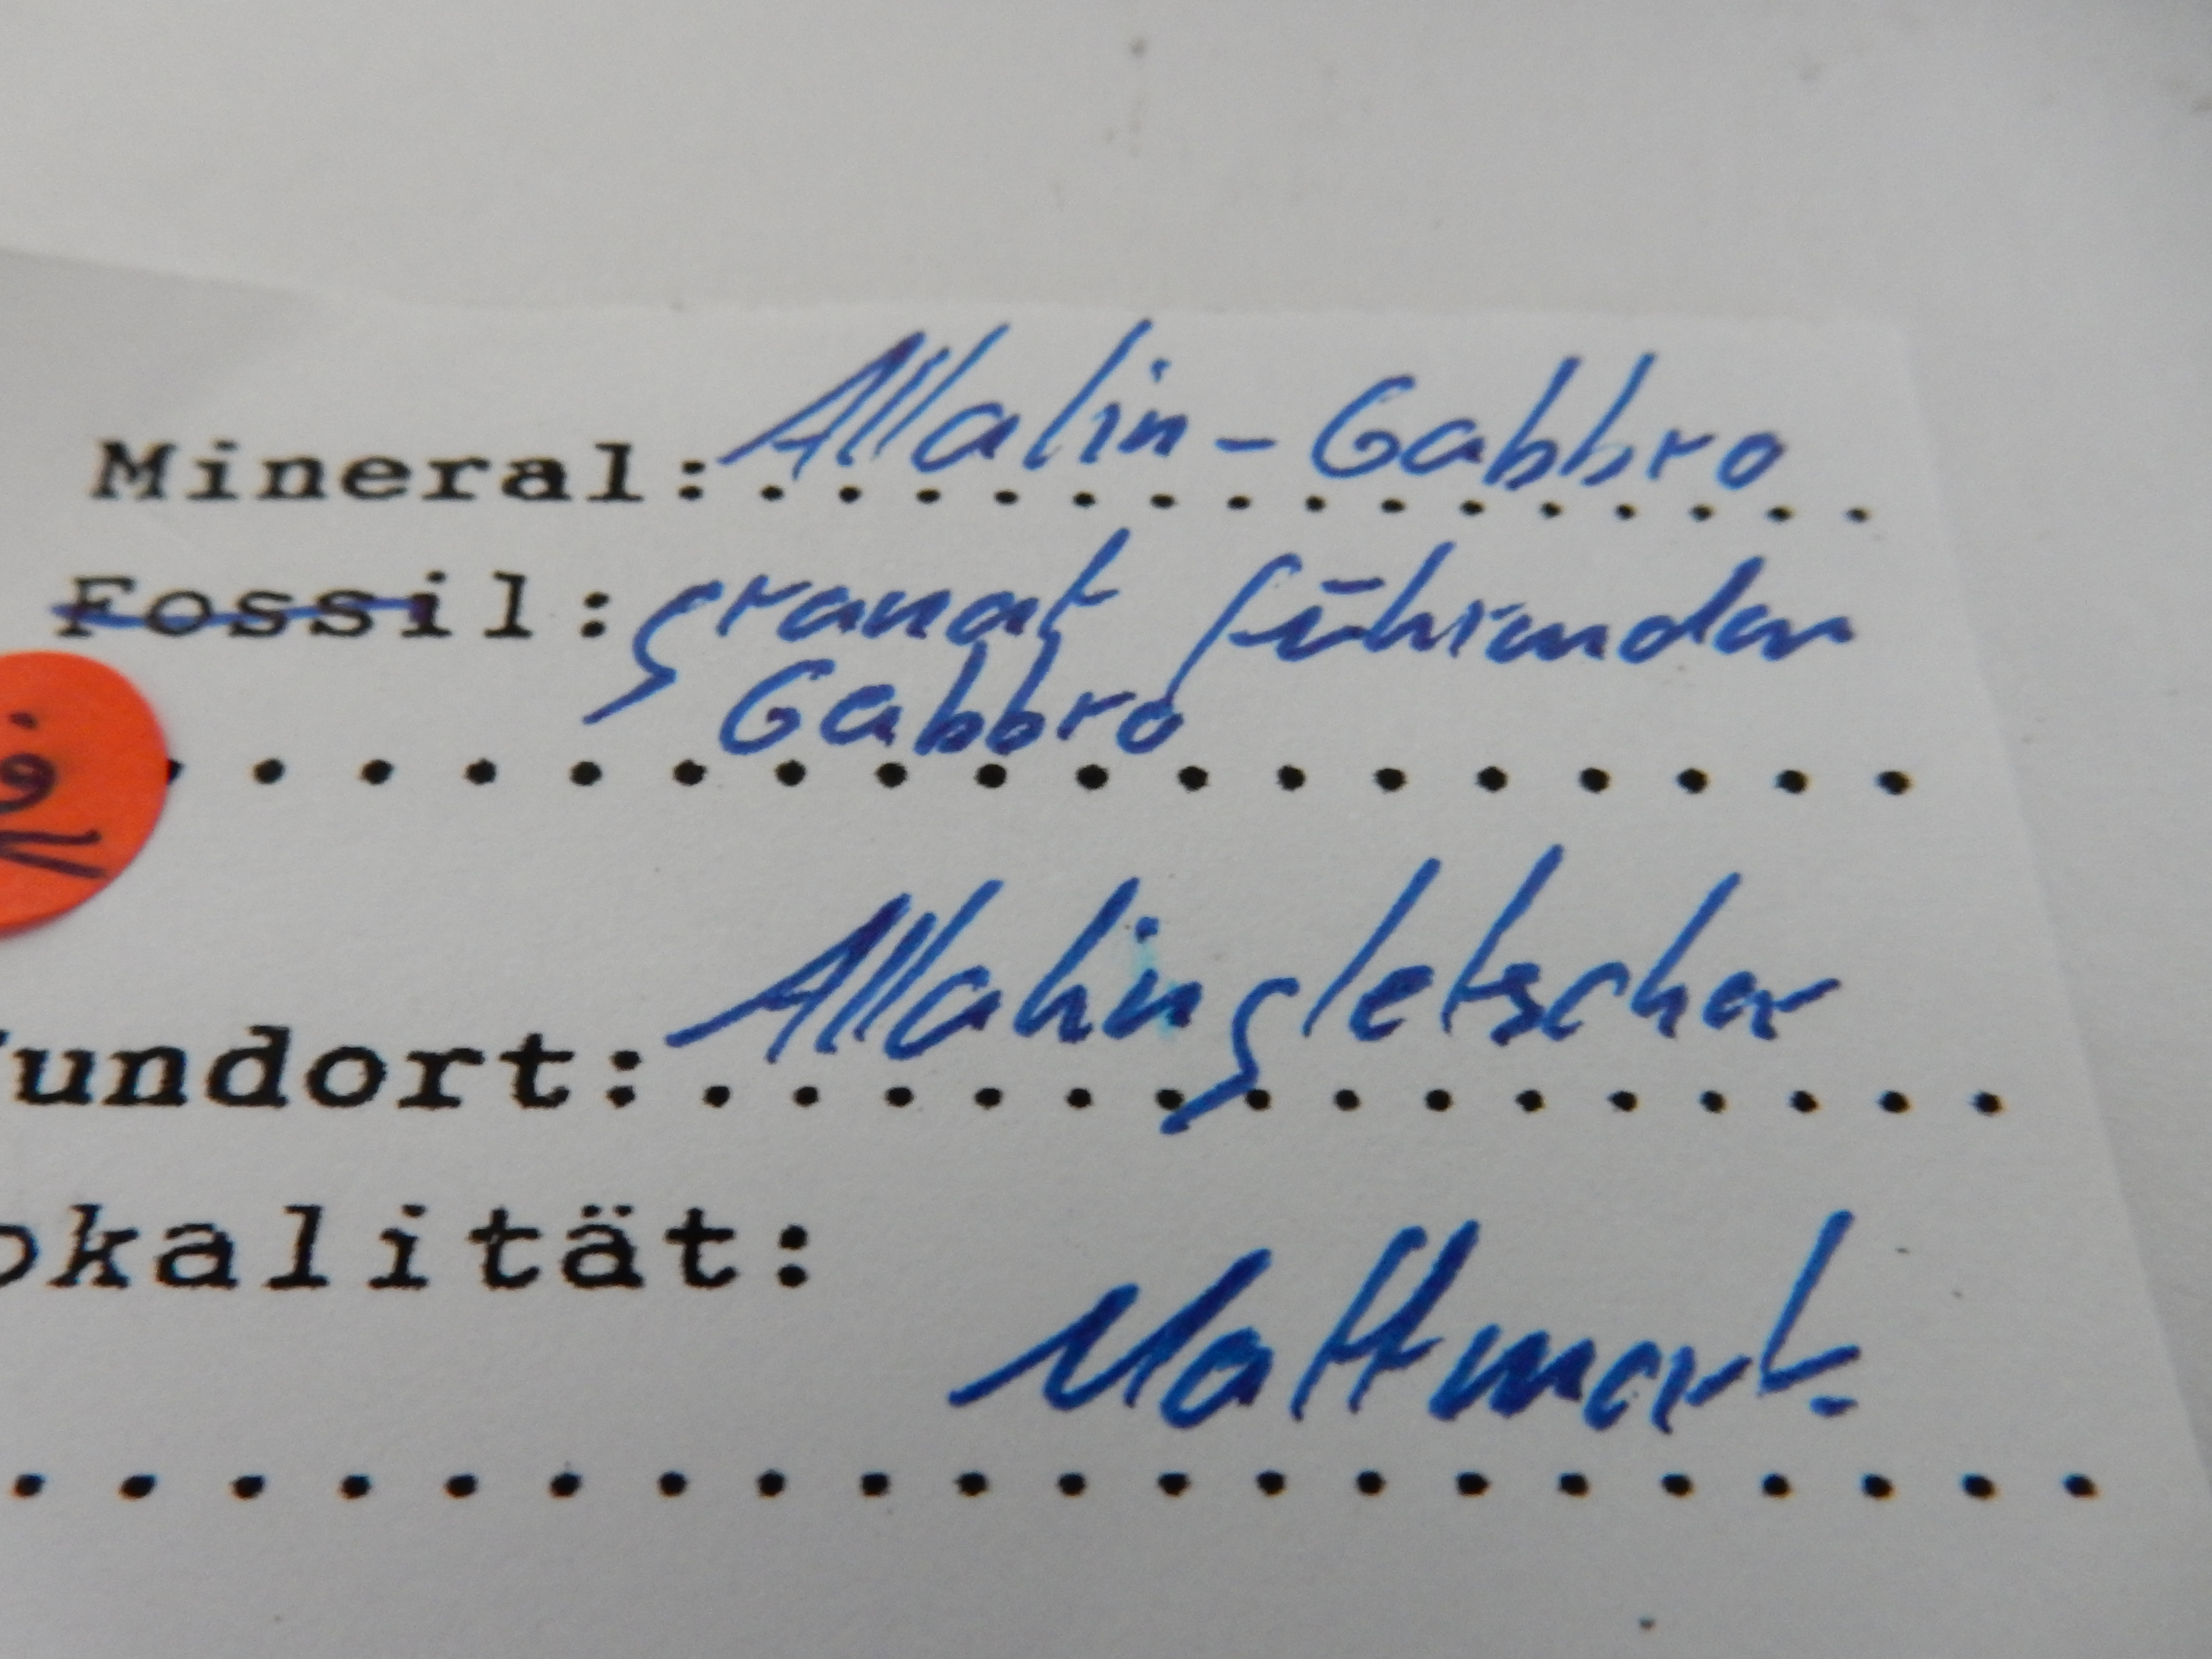 Mineral: Allalin-Gabbro
Fossil: granat führender
Gabbro
undort: Allalingletscher
okalität:
Mattmark